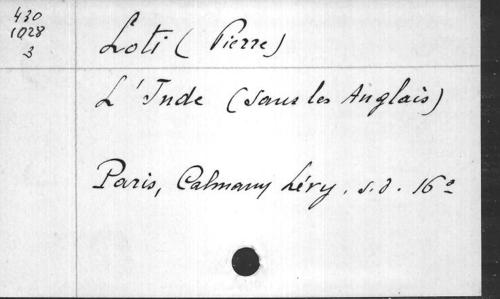 430
1028
3
Loti (Pierre)
L'Inde (sans les Anglais)
Paris, Calmann Lévy. s.d. 16º